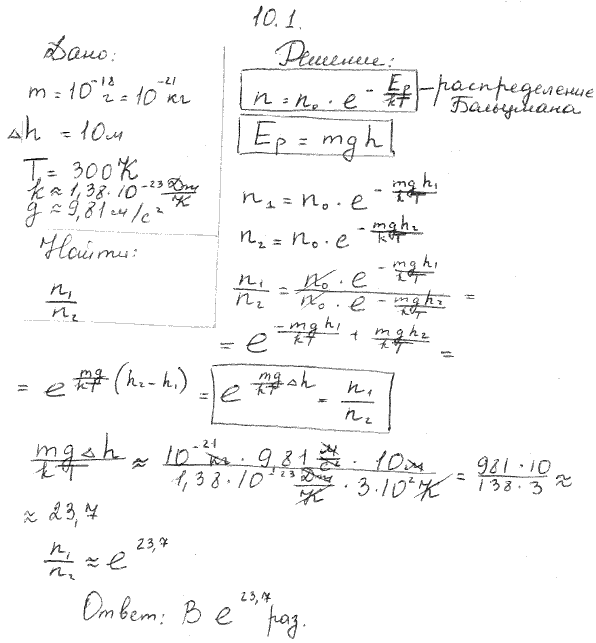 10.1.
Дано:
m = 10⁻¹⁸ г = 10⁻²¹ кг
Δh = 10 м
T = 300 K
k ≈ 1,38 · 10⁻²³ Дж/K
g ≈ 9,81 м/с²
Найти:
n₁/n₂
Решение:
n = n₀ · e^(-Ep/kT) – распределение
Больцмана
Ep = mgh
n₁ = n₀ · e^(-mgh₁/kT)
n₂ = n₀ · e^(-mgh₂/kT)
n₁/n₂ = (n₀ · e^(-mgh₁/kT))/(n₀ · e^(-mgh₂/kT)) =
= e^(-mgh₁/kT + mgh₂/kT) =
= e^(mg/kT (h₂ – h₁)) = e^(mg/kT Δh) = n₁/n₂
mgΔh/kT ≈ (10⁻²¹ кг · 9,81 м/с² · 10 м)/(1,38 · 10⁻²³ Дж/K · 3 · 10² K) = (981 · 10)/(138 · 3) ≈
≈ 23,7
n₁/n₂ ≈ e^23,7
Ответ: В e^23,7 раз.